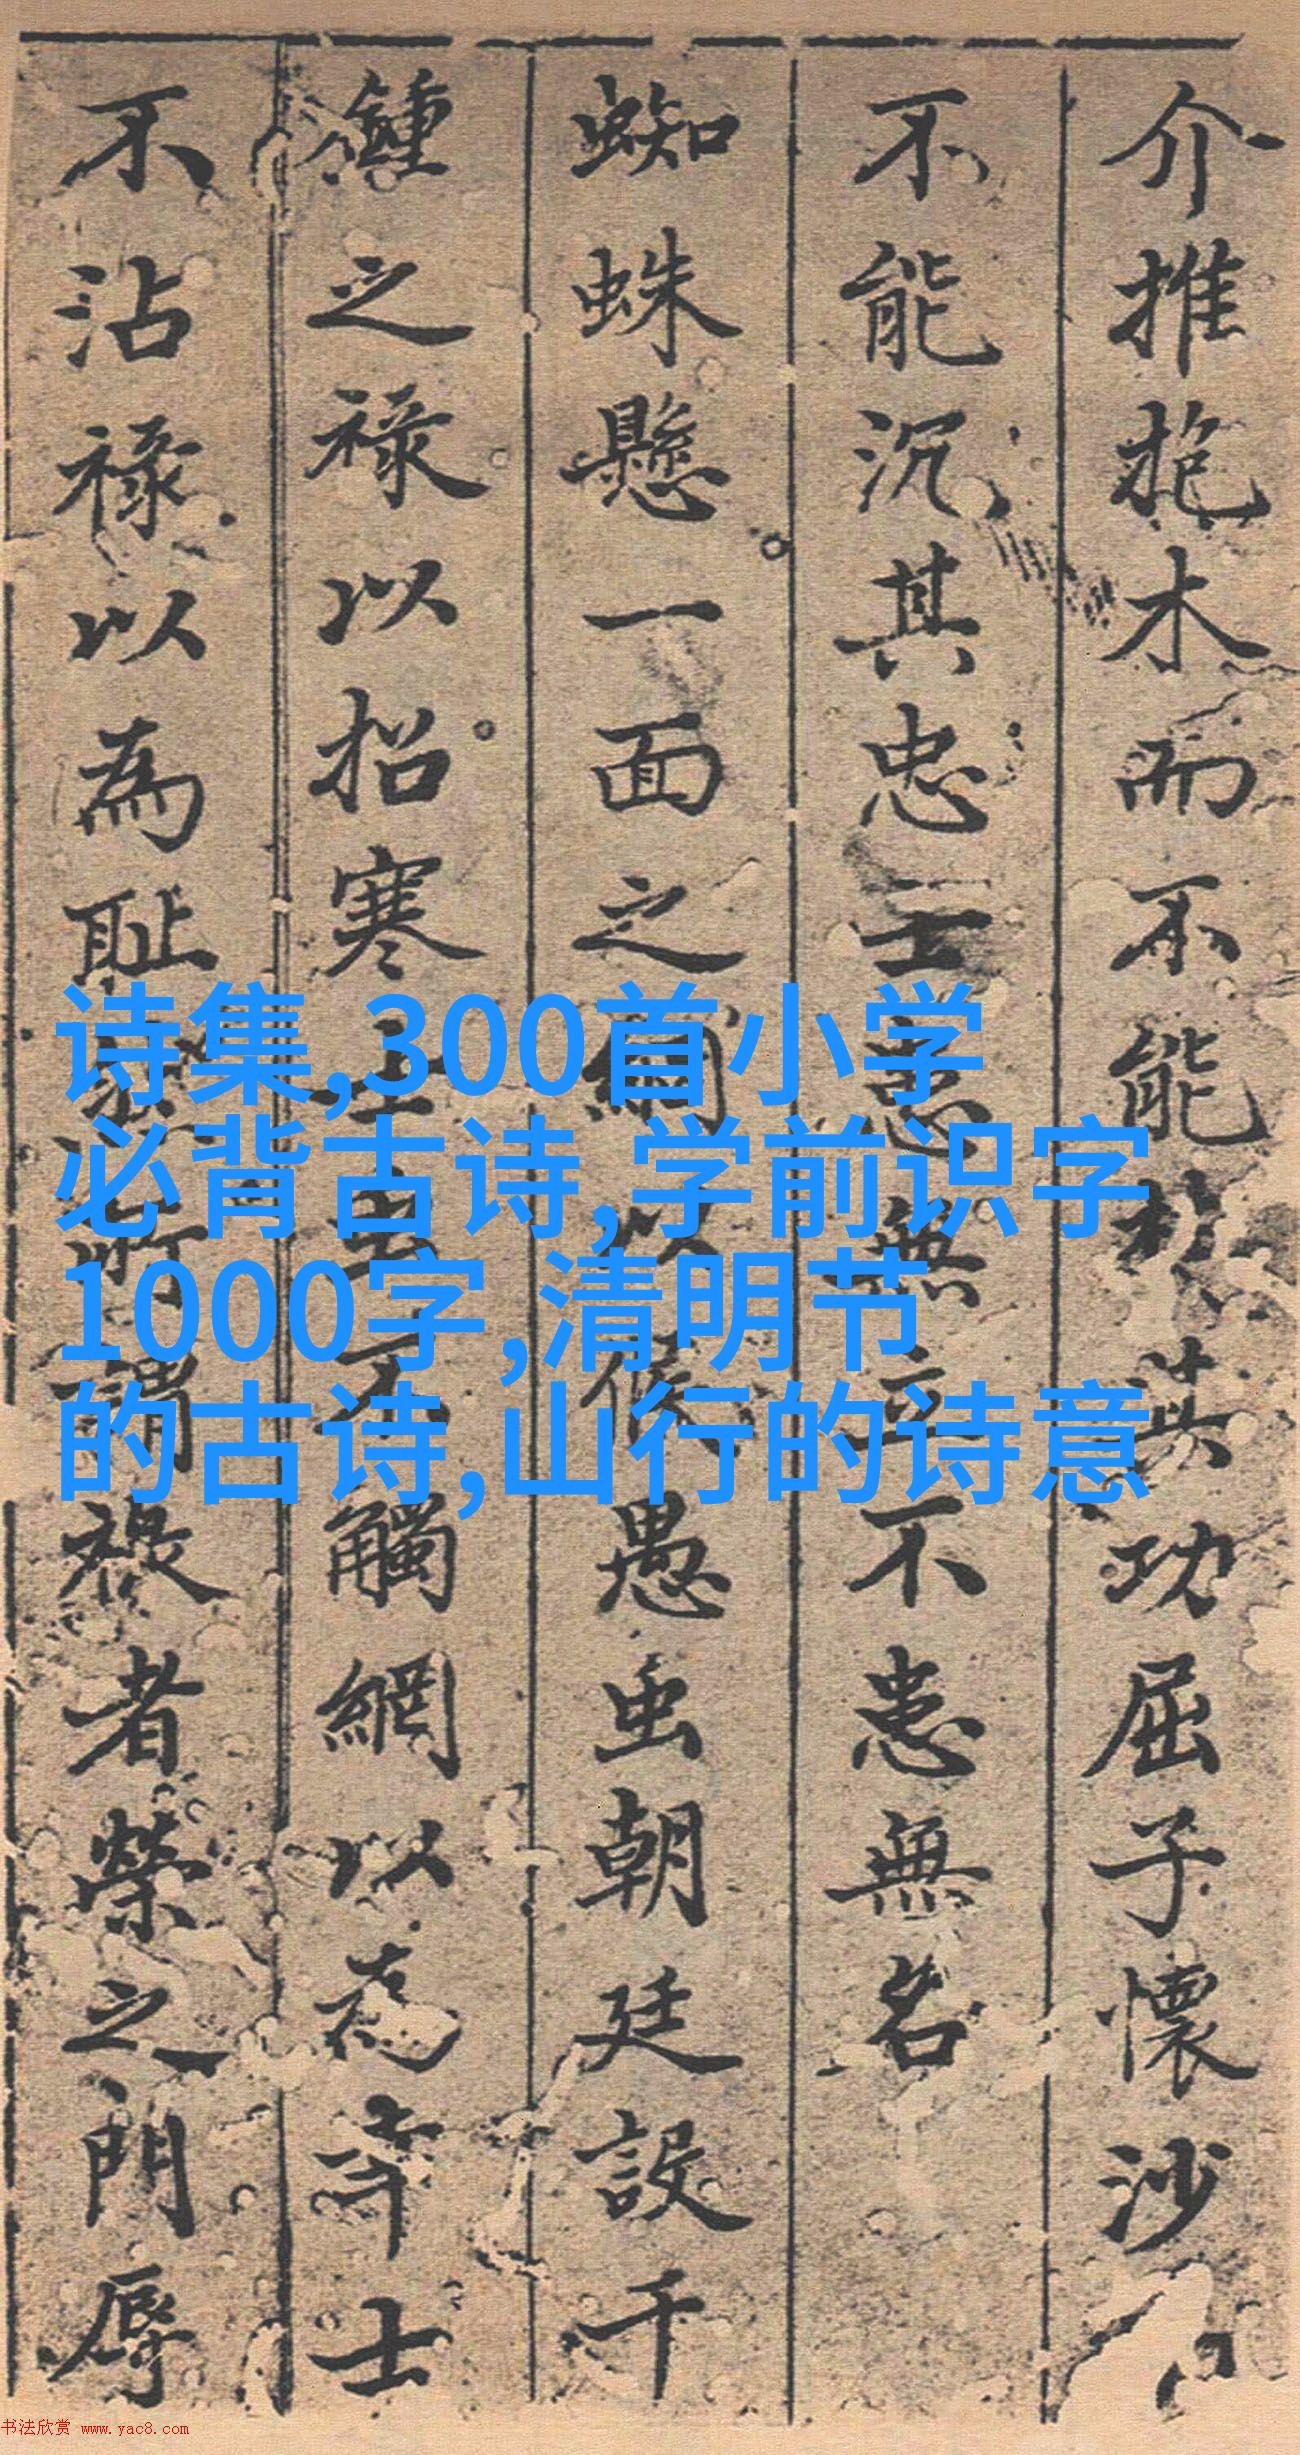 介推抱木而不能其功屈子懷沙
不能沉其忠士患無立不患無名
蜘蛛懸一面之網以候愚虫朝廷設千
鍾之祿以招寒士不觸網以為幸士
不沾祿以為耻所謂祿者榮之門辱
诗集,300首小学
必背古诗,学前识字
1000字,清明节
的古诗,山行的诗意
书法欣赏 www.yac8.com